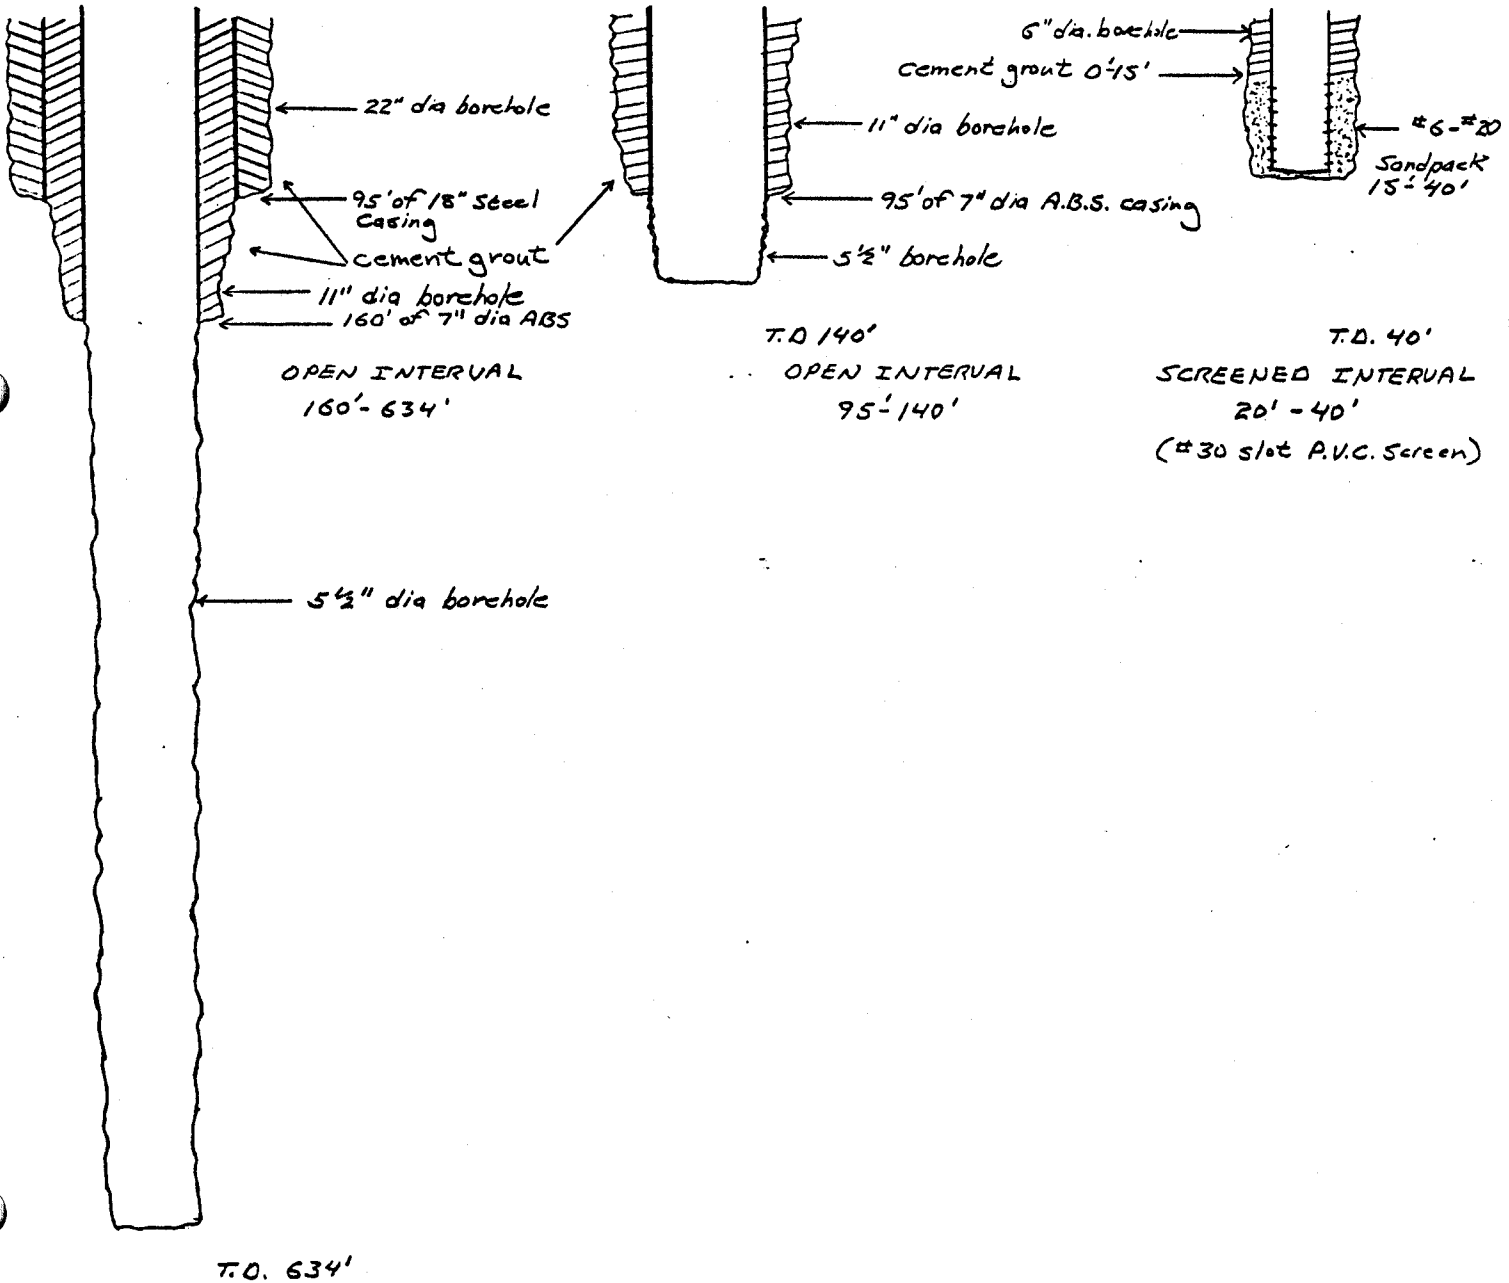 22" dia borehole
95' of 18" Steel
Casing
cement grout
11" dia borehole
160' of 7" dia ABS
OPEN INTERVAL
160'- 634'
5 1/2" dia borehole
T.D. 634'
11" dia borehole
95' of 7" dia A.B.S. casing
5 1/2" borehole
T.D 140'
OPEN INTERVAL
95'-140'
6" dia. borehole
cement grout 0'-15'
#6-#20
Sandpack
15'-40'
T.D. 40'
SCREENED INTERVAL
20' - 40'
(#30 slot P.V.C. Screen)